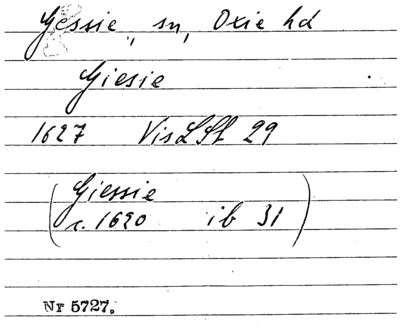 Gessie, sn, Oxie hd
Giesie
1627 VisLSt 29
(Giessie
c. 1620 ib 31)
Nr 5727.